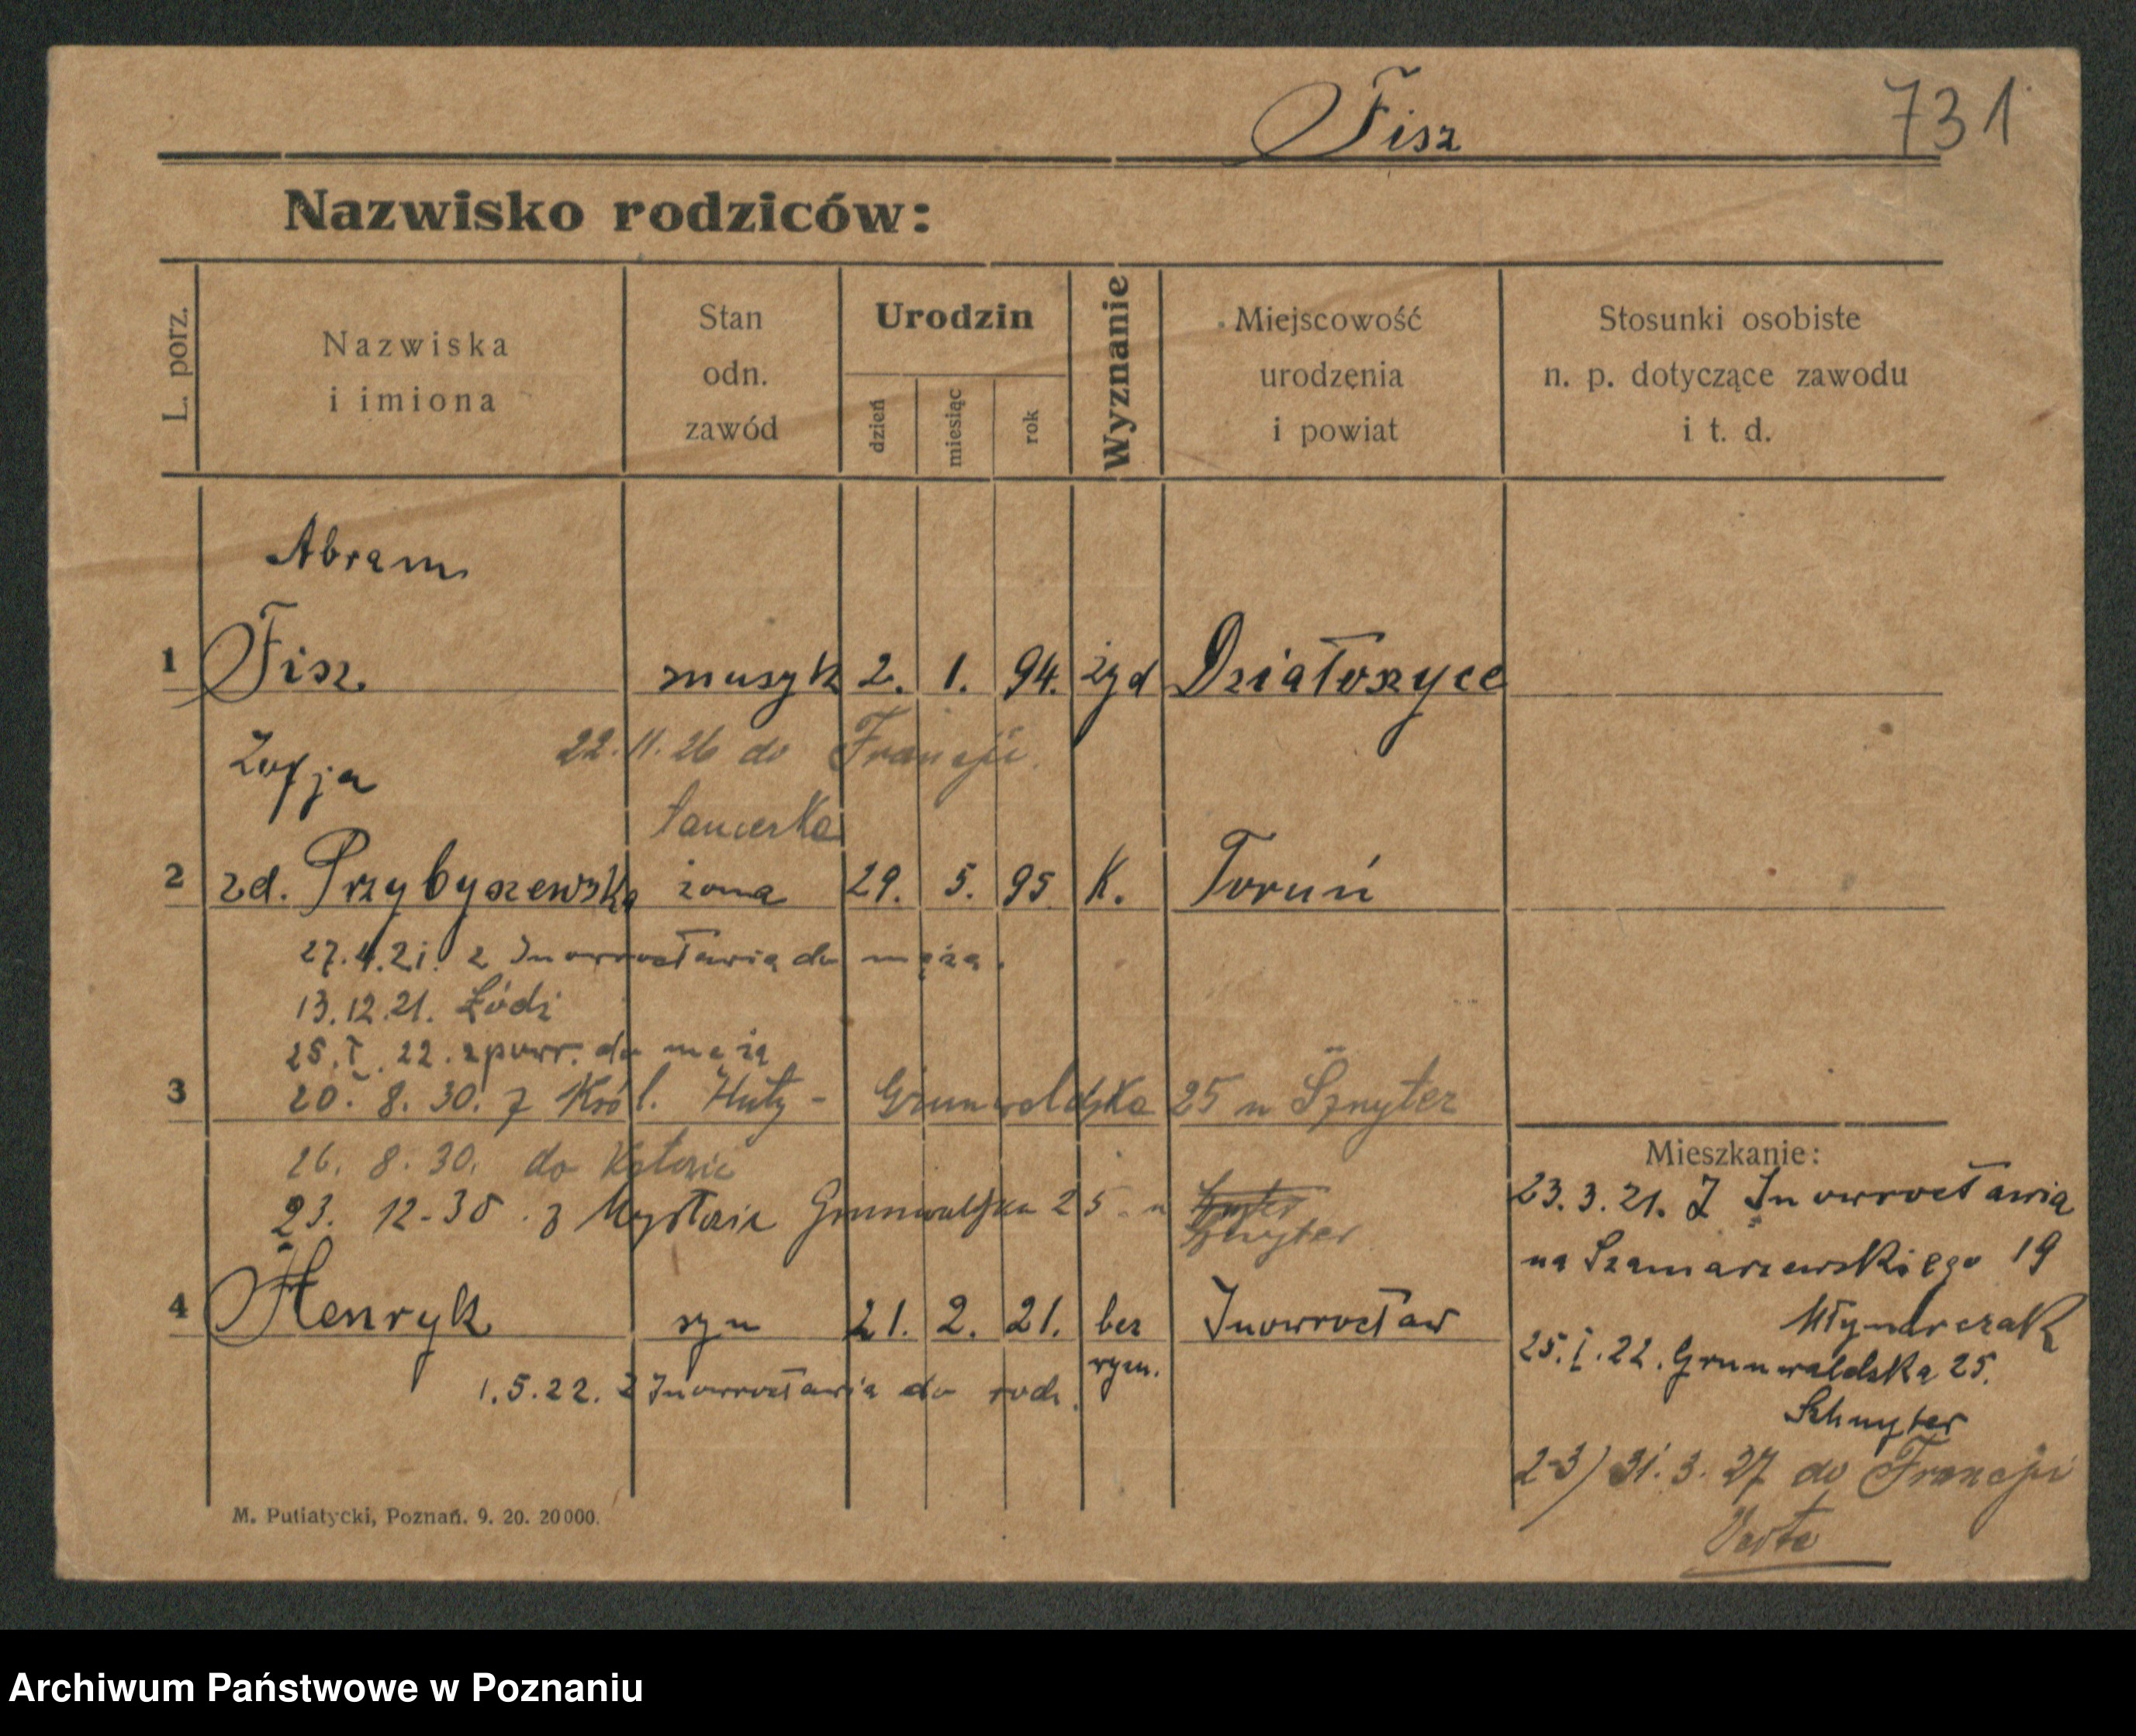 Fisz
731
Nazwisko rodziców:
L. porz.
Nazwiska
i imiona
Stan
odn.
zawód
Urodzin
dzień
miesiąc
rok
Wyznanie
Miejscowość
urodzenia
i powiat
Stosunki osobiste
n. p. dotyczące zawodu
i t. d.
Abram
1 Fisz. muzyk 2. 1. 94. żyd Działoszyce
22.11.26 do Francji.
Zofja
tancerka
2 zd. Przybyszewska żona 29. 5. 95 K. Toruń
27.4.21. z Inowrocławia do męża.
13.12.21. Łódź
25.I.22. z powr. do męża
3 20. 8. 30. z Król. Huty - Grunwaldzka 25 u Sznyter
26. 8. 30. do Katowic
23. 12-30. z Mysłowic Grunwaldzka 25. u
Sznyter
4 Henryk syn 21. 2. 21. bez Inowrocław
rzym.
1.5.22. z Inowrocławia do rodz.
Mieszkanie:
23.3.21. Z Inowrocławia
na Szamarzewskiego 19
Młynarczak
25.I.22. Grunwaldska 25.
Schnyter
2-3) 31.3.27 do Francji
Verte
M. Putiatycki, Poznań. 9. 20. 20000.
Archiwum Państwowe w Poznaniu